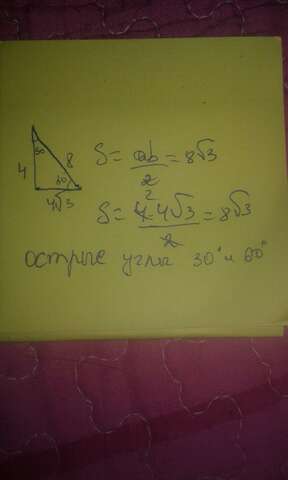 30
4
8
60
4√3
S = ab/2 = 8√3
S = 4·4√3/2 = 8√3
2
острые углы 30° и 60°